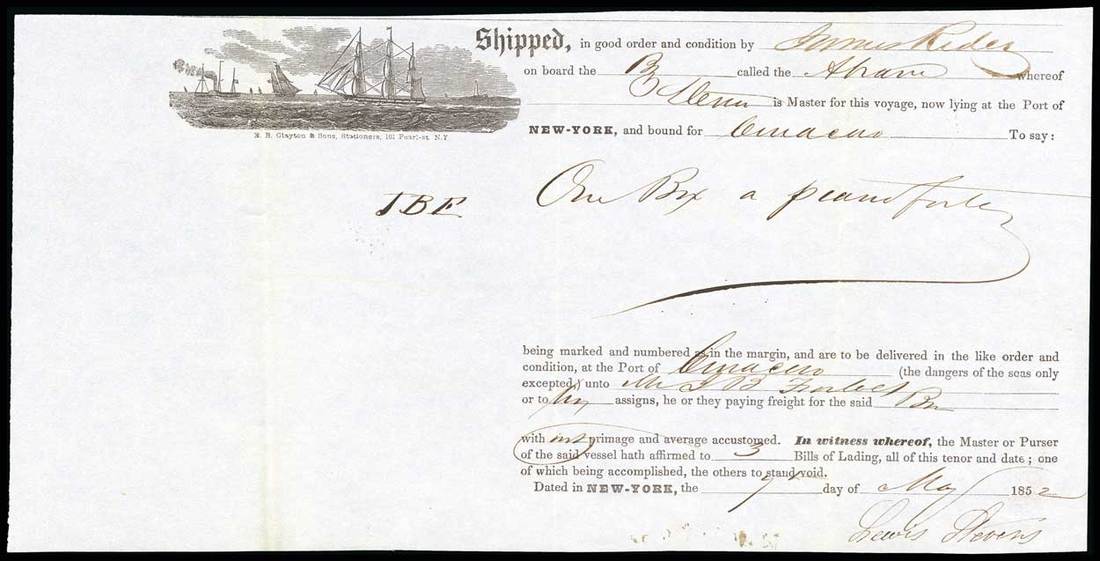 Shipped, in good order and condition by James Rider
on board the B called the Abram whereof
is Master for this voyage, now lying at the Port of
E. B. Clayton & Sons, Stationers, 161 Pearl-st. N.Y
NEW-YORK, and bound for Curacao To say:
JBF One Box a piano forte
being marked and numbered as in the margin, and are to be delivered in the like order and
condition, at the Port of Curacao (the dangers of the seas only
excepted,) unto Mr J B
or to his assigns, he or they paying freight for the said Box
with primage and average accustomed. In witness whereof, the Master or Purser
of the said vessel hath affirmed to 3 Bills of Lading, all of this tenor and date; one
of which being accomplished, the others to stand void.
Dated in NEW-YORK, the day of May 1852
Lewis Stevens